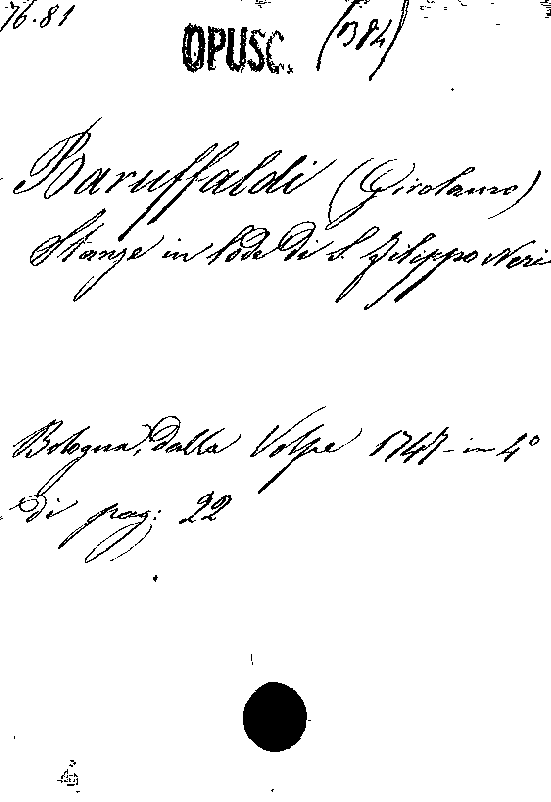 76.81 OPUSC. (B 84)
Baruffaldi (Girolamo)
Stanze in lode di S. Filippo Neri
Bologna, dalla Volpe 1747 in 4º
di pag: 22